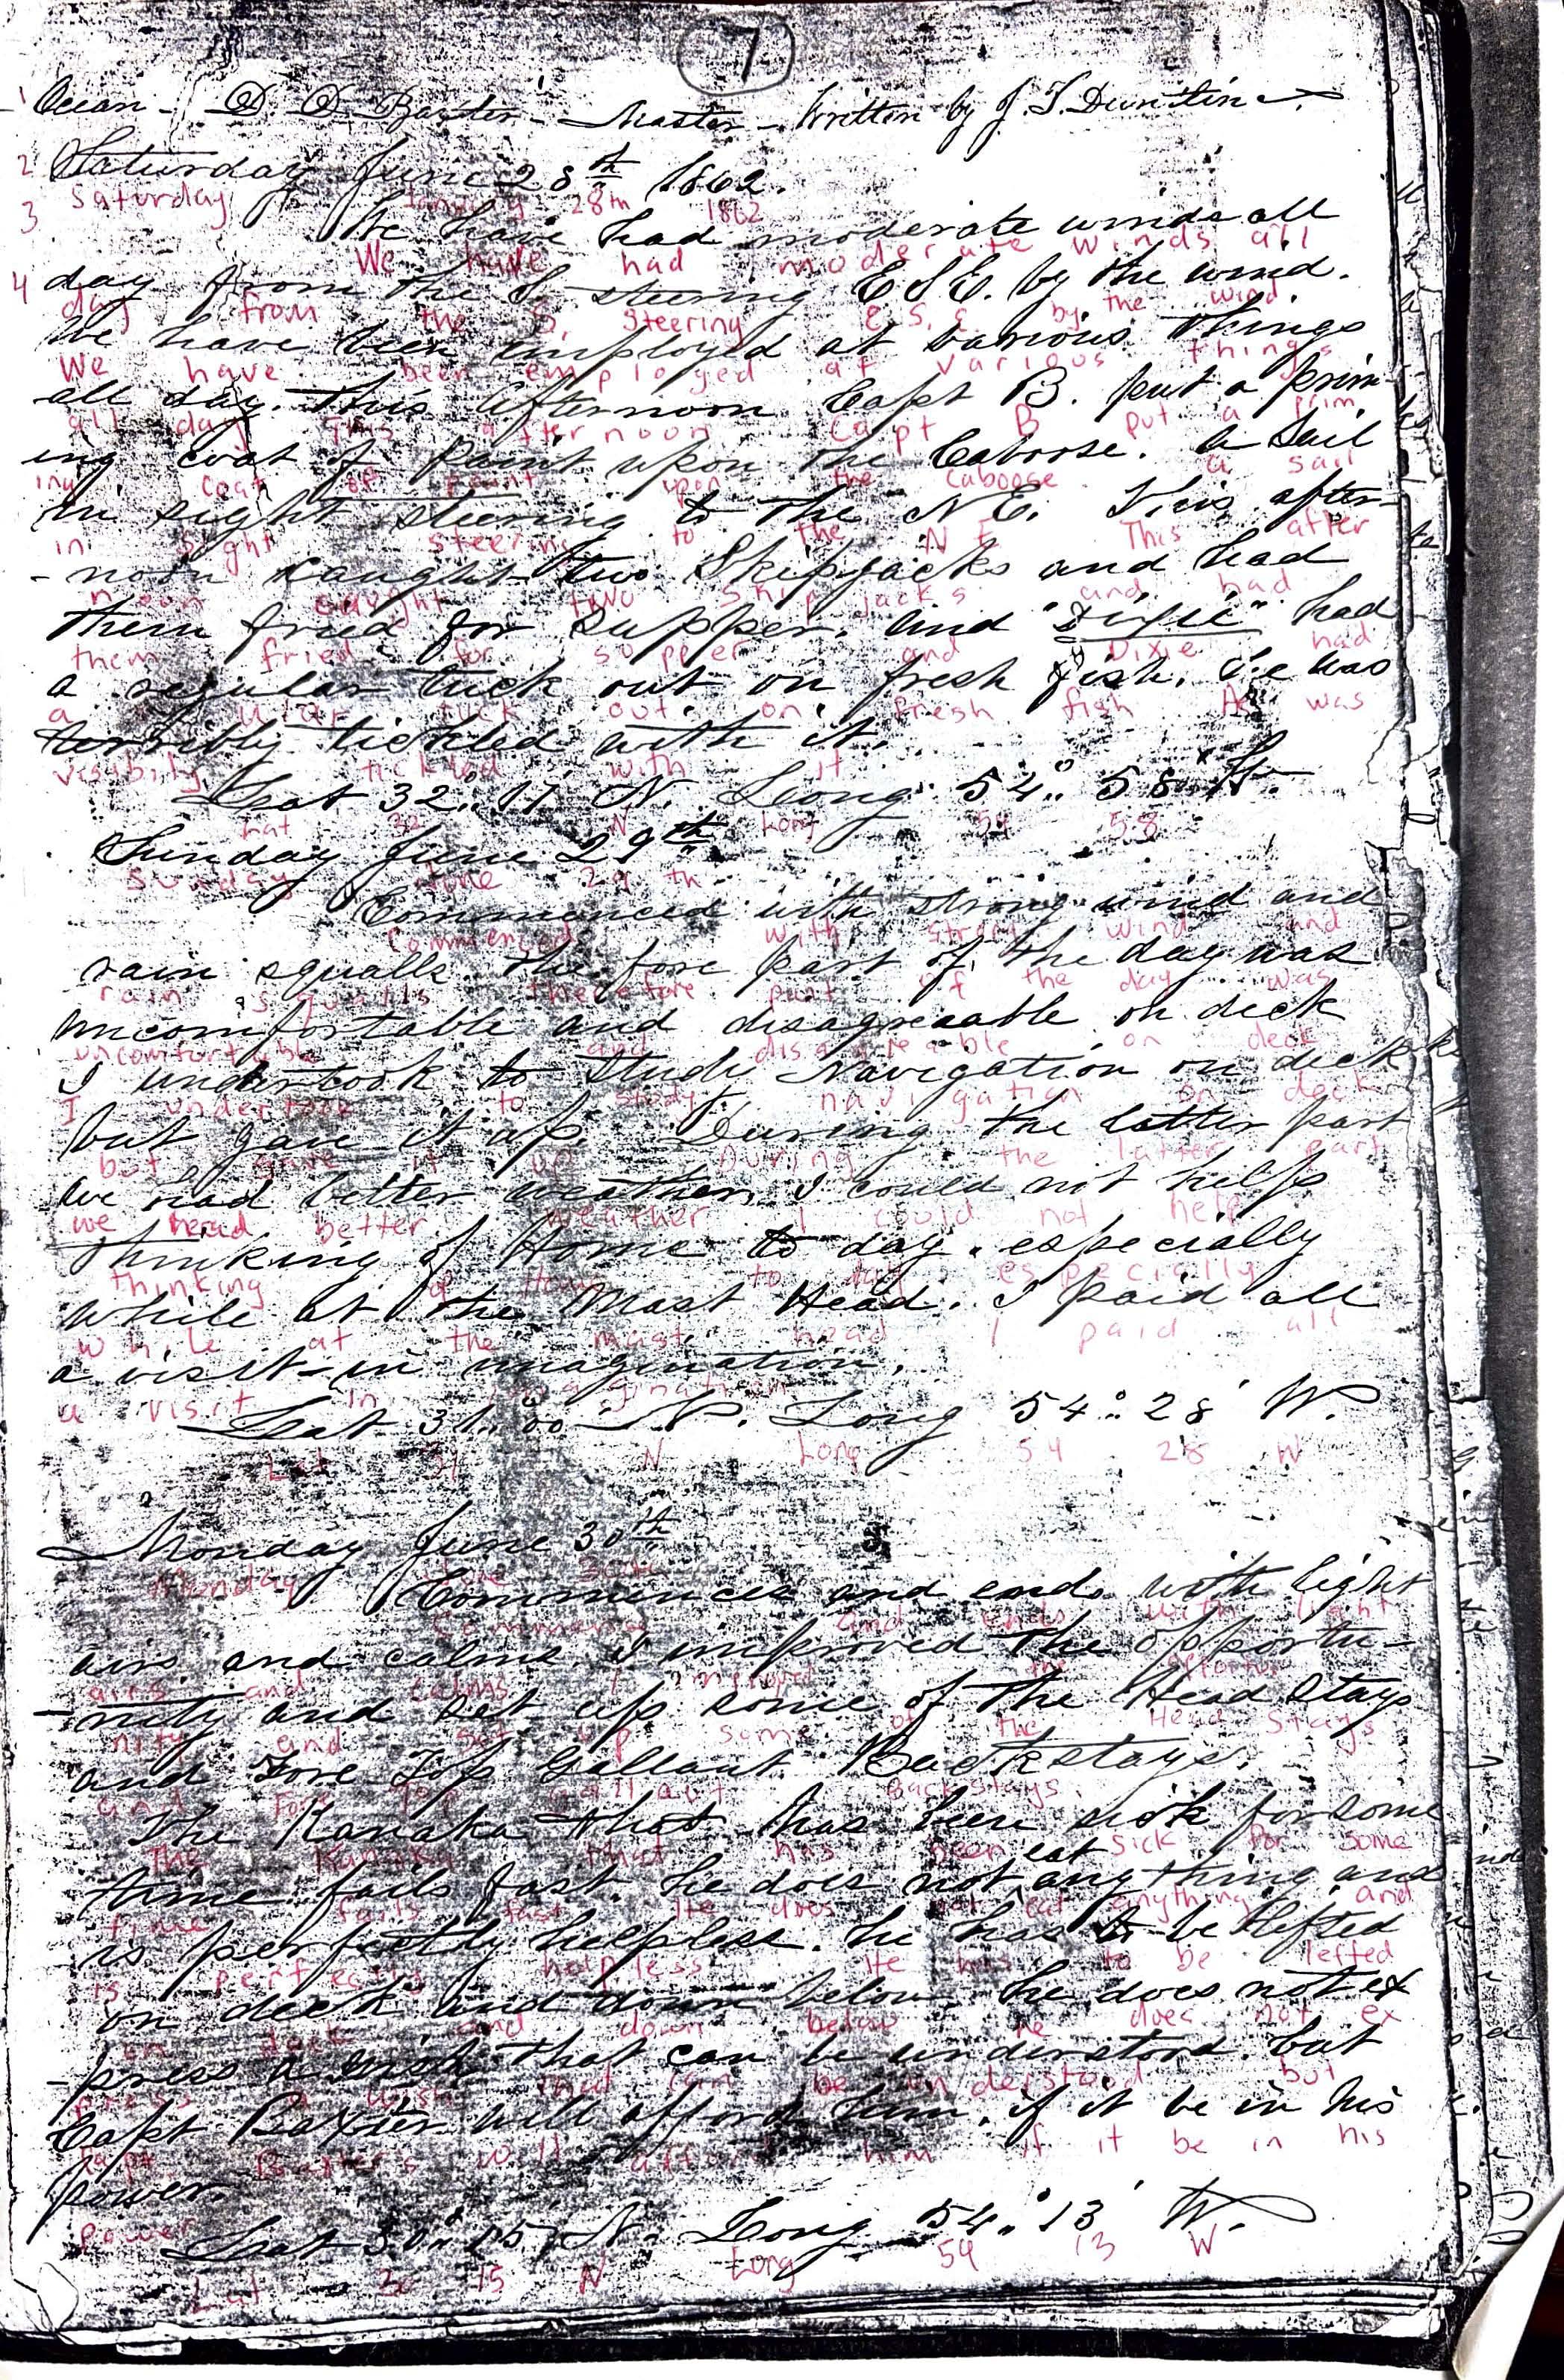 7
1 Ocean - D. D. Baxter - Master - Written by J. T. Dunstin
2 Saturday June 28th 1862.
Saturday 28th 1862
3 We have had moderate winds all
We have had moderate winds all
4 day from the S. steering E.S.E. by the wind.
day from the S. steering E.S.E. by the wind
We have been employed at various things
We have been employed at various things
all day. This afternoon Capt B. put a prim-
all day This afternoon Capt B put a prim
ing coat of paint upon the Caboose. a Sail
ing coat of paint upon the caboose a sail
in sight steering to the N E. This after-
in sight steering to the N E This after
-noon caught two Skipjacks and had
noon caught two skipjacks and had
them fried for supper. and "Dixie" had
them fried for supper and Dixie had
a regular tuck out on fresh fish. he was
a regular tuck out on fresh fish He was
terribly tickled with it.
visibily tickled with it
Lat 32° 17' N. Long 54° 58' W.
Lat 32 N Long 54 58
Sunday June 29th
Sunday June 29th
Commenced with strong wind and
Commenced with strong wind and
rain squalls. the fore part of the day was
rain squalls therefore part of the day was
uncomfortable and disagreeable on deck
uncomfortable and disagreeable on deck
I undertook to study Navigation on deck
I undertook to study navigation on deck
but gave it up. During the latter part
but gave it up During the latter part
we had better weather. I could not help
we head better weather I could not help
thinking of Home to day. especially
thinking of Home to day especially
while at the Mast Head. I paid all
while at the mast head I paid all
a visit in imagination.
a visit in imagination
Lat 31° 00' N. Long 54° 28' W.
Lat 31 N Long 54 28 W
Monday June 30th
Monday June 30th
Commences and ends with light
Commence and ends with light
airs and calms I improved the opportu-
airs and calms I improved the opportu
-nity and set up some of the Head stays
nity and set up some of the Head stays
and Fore Top Gallant Backstays.
and Fore Top Gallaut Backstays
The Kanaka that has been sick for some
The Kanaka that has been sick for some
time fails fast. he does not eat any thing and
time fails fast He does not eat anything and
is perfectly helpless. he has to be lifted
is perfectly helpless He has to be lefted
on deck and down below. he does not ex
on deck and down below he does not ex
-press a wish that can be understood. but
press a wish that can be understood but
Capt Baxter will afford him, if it be in his
Capt Baxters will afford him if it be in his
power.
power
Lat 30° 15' N. Long 54° 13' W.
Lat 30 15 N Long 54 13 W